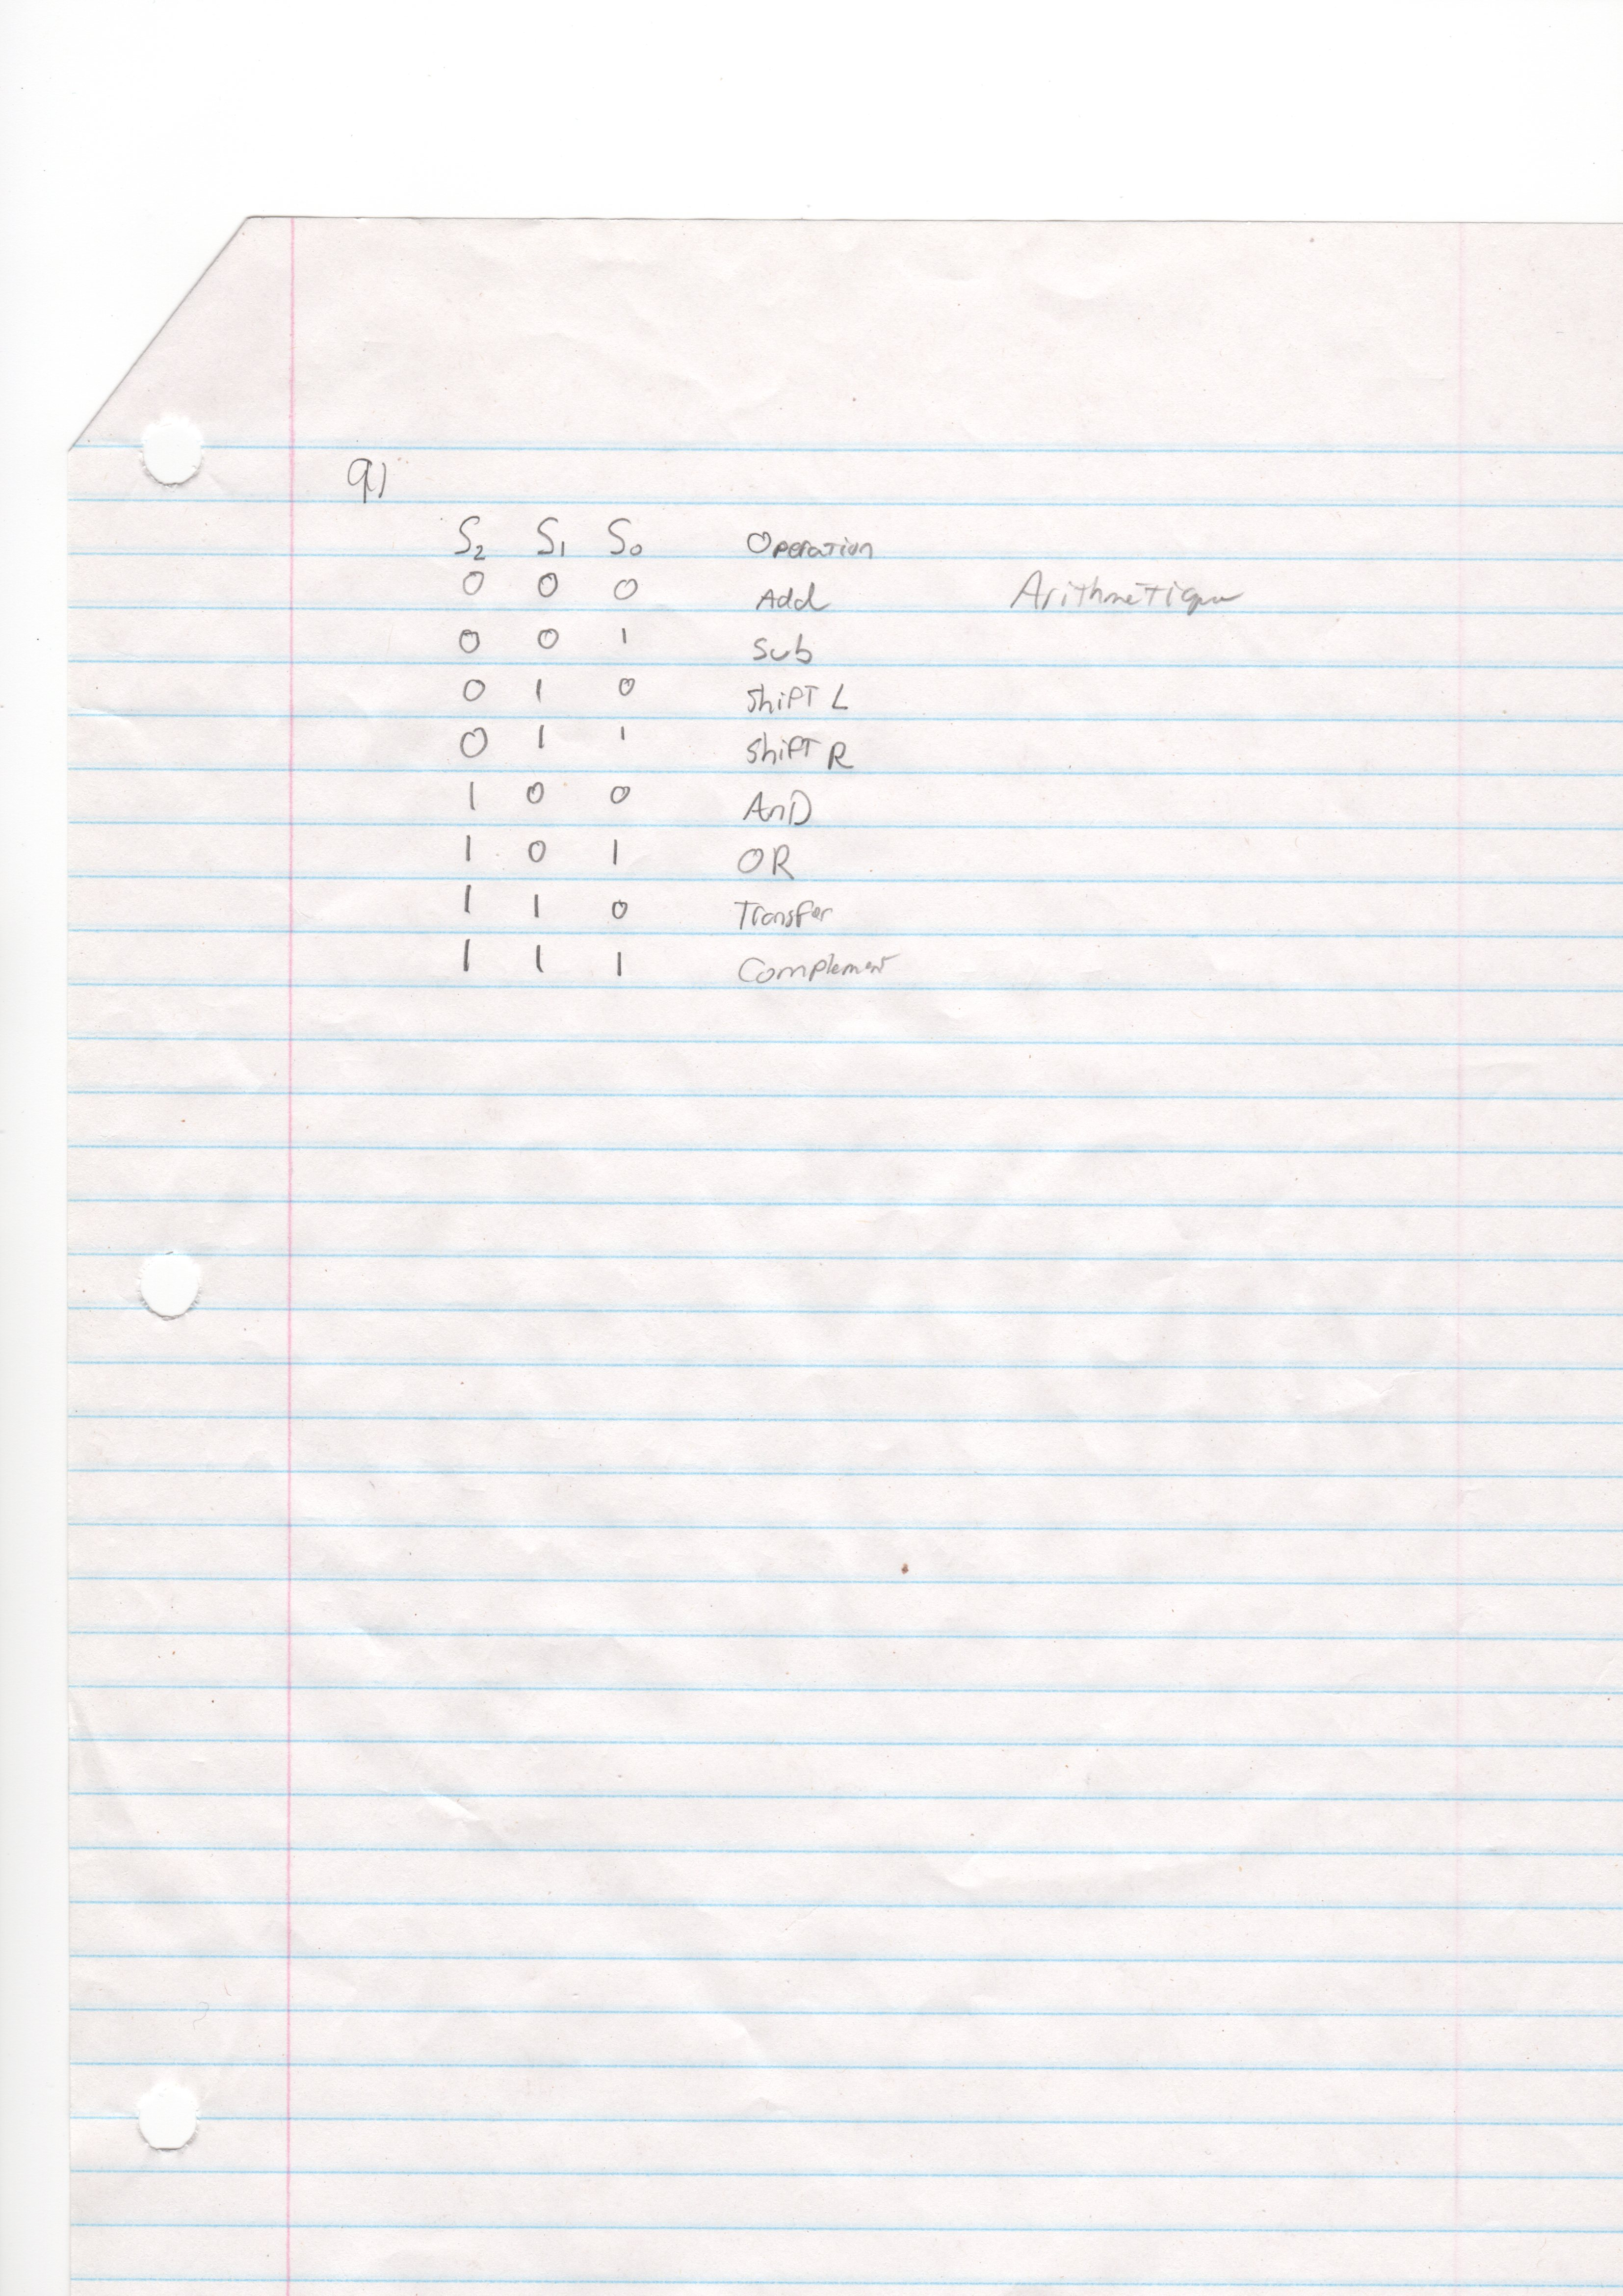 9)
S2 S1 S0 Operation
0 0 0 Add Arithmetique
0 0 1 Sub
0 1 0 Shift L
0 1 1 Shift R
1 0 0 AnD
1 0 1 OR
1 1 0 Transfer
1 1 1 Complement